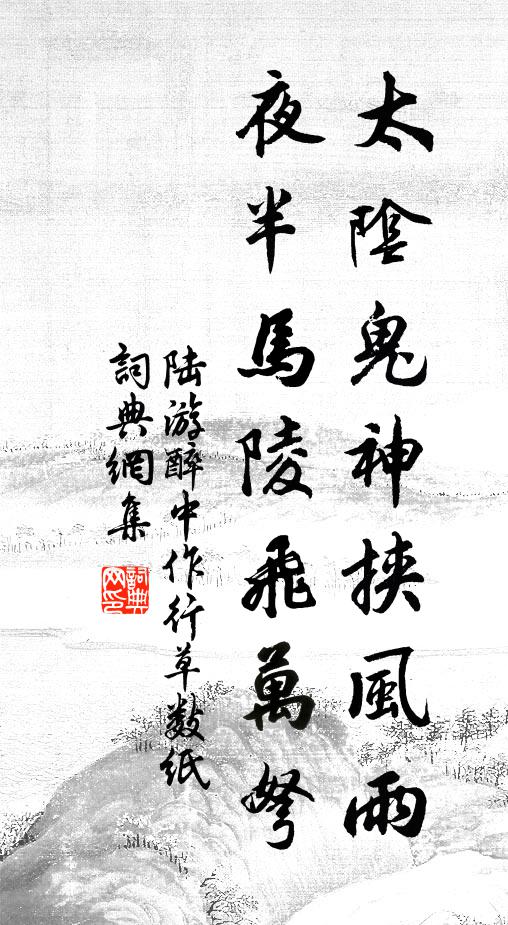 太陰鬼神挾風雨
夜半馬陵飛萬弩
陸游醉中作行草數紙
詞典網集
詞典网印